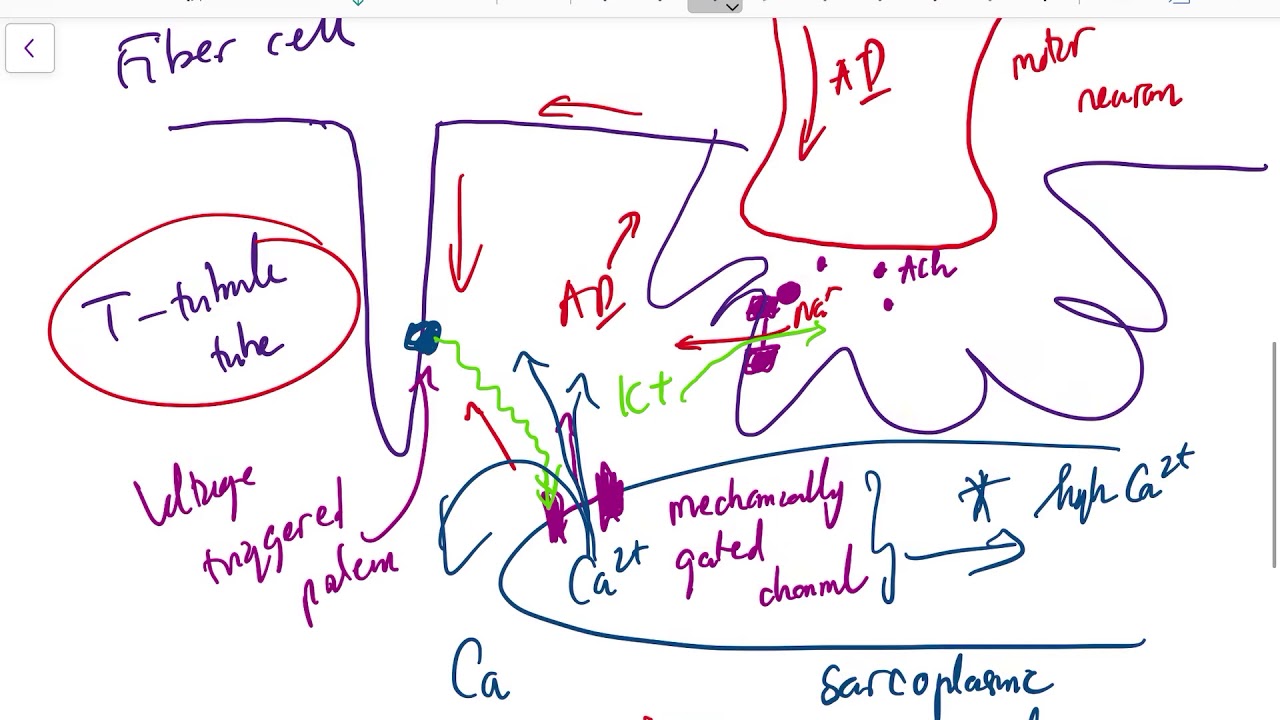 Fiber cell
AP
motor
neuron
T-tubule
tube
AP
ACh
Na+
K+
Voltage
triggered
protein
mechanically
gated
channel
high Ca2+
Ca2+
Ca
sarcoplasmic